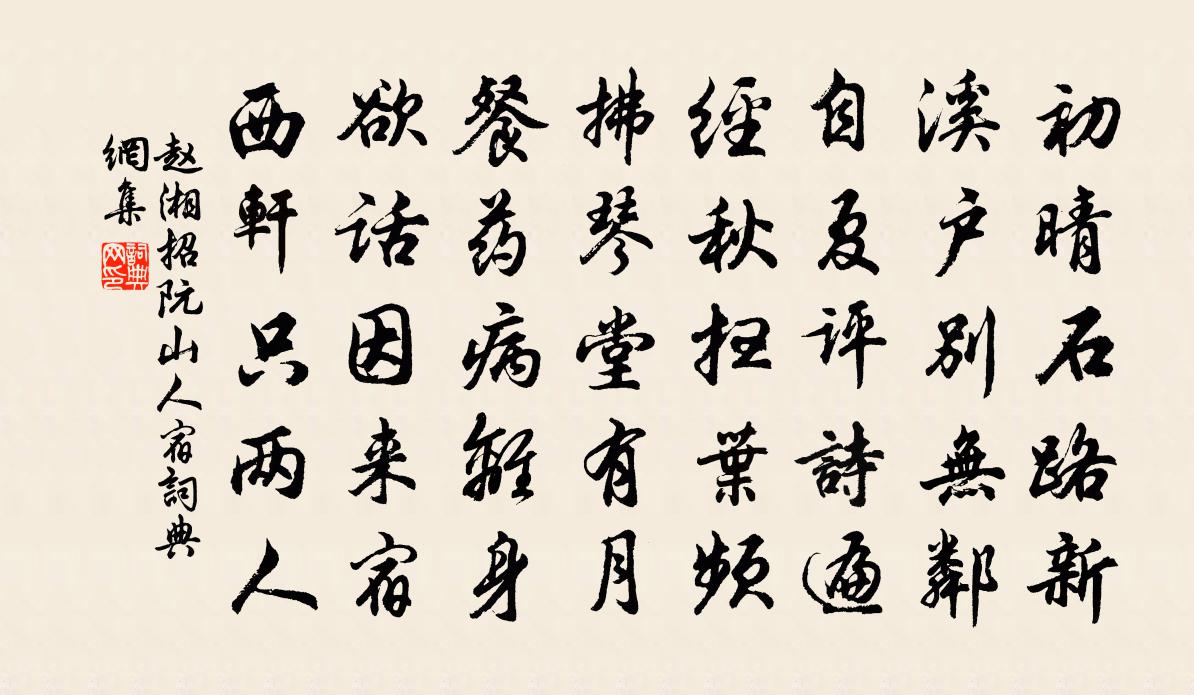 初晴石路新
溪户别無鄰
自夏評詩遍
經秋扫葉頻
拂琴堂有月
餐药病離身
欲话因来宿
西軒只两人
赵湘招阮山人宿詞典
網集
詞典
网印